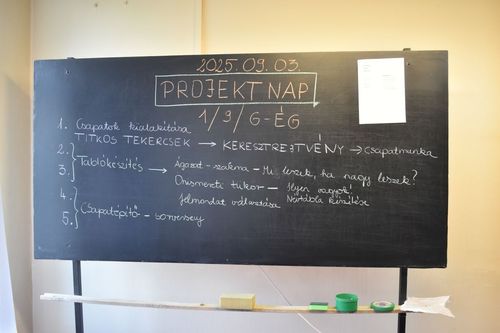 2025.09.03.
PROJEKT NAP
1/9/G-ÉG
1. Csapatok kialakítása
TITKOS TEKERCSEK → KERESZTREJTVÉNY → Csapatmunka
2. Tablókészítés → Ágazat - szakma - Mi leszek, ha nagy leszek?
3. Önismereti tükör - Ilyen vagyok!
Jelmondat választása Névtábla készítése
4. Csapatépítő - sorverseny
5.